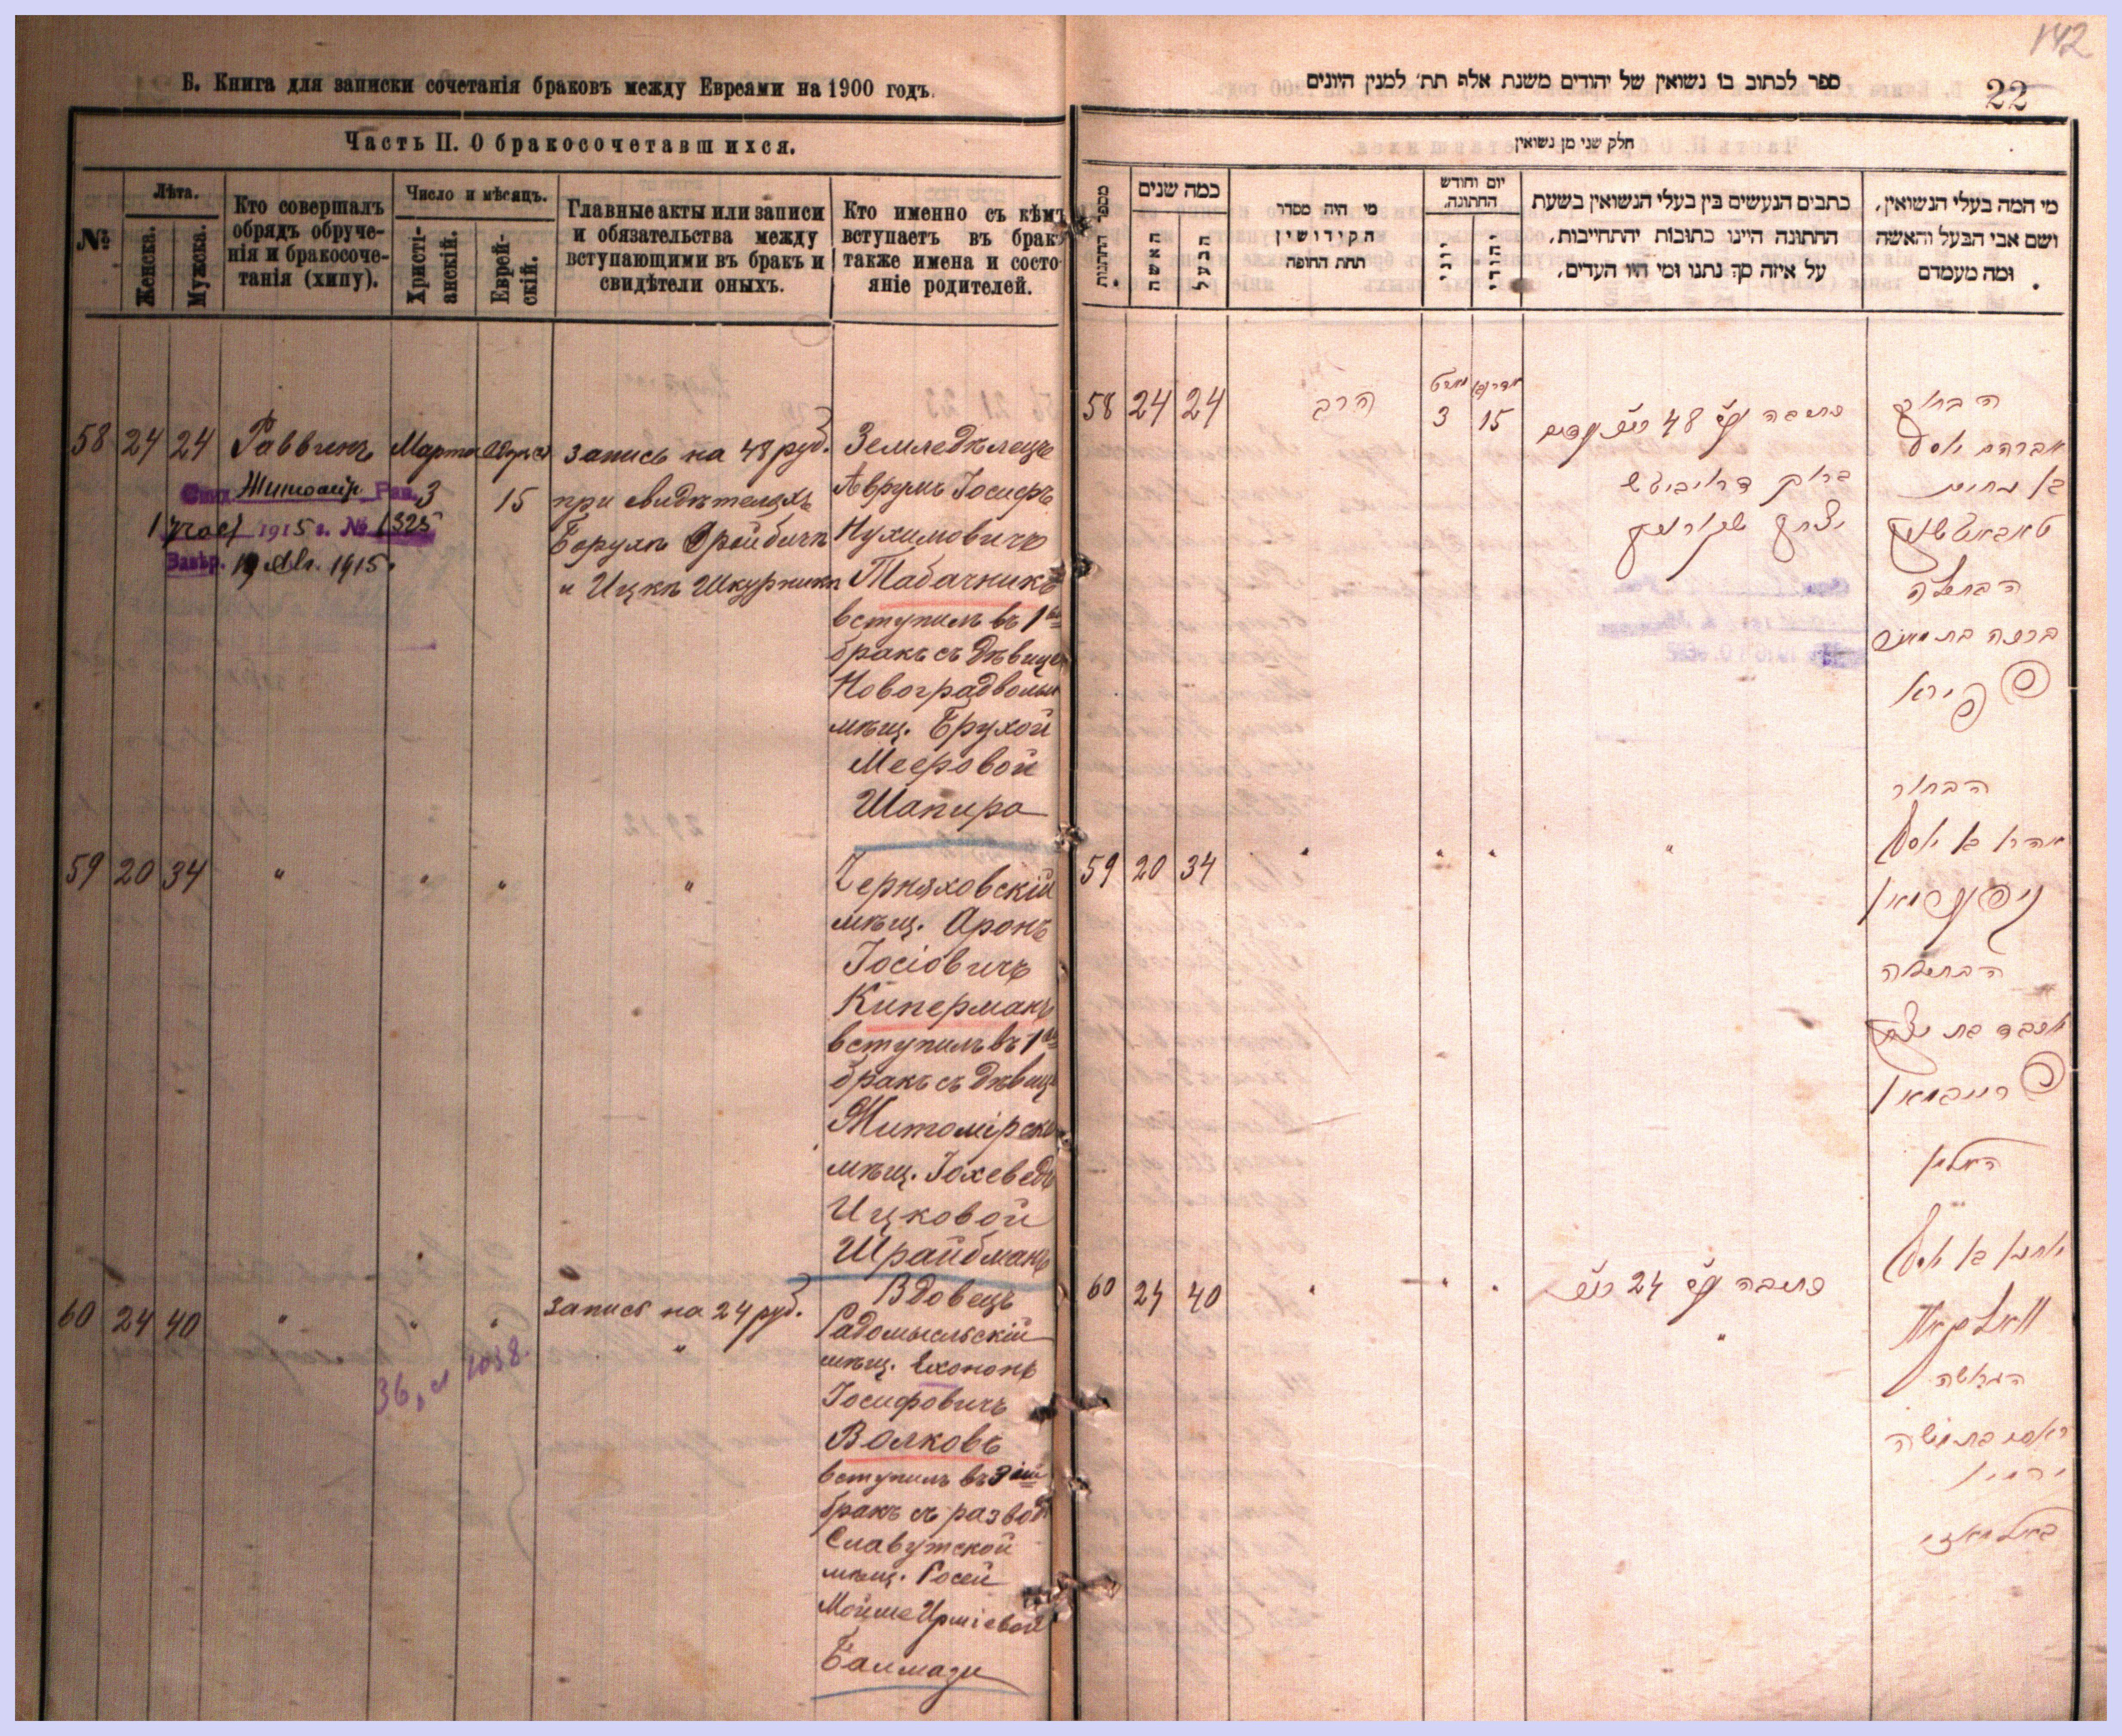 Б. Книга для записки сочетанія браковъ между Евреами на 1900 годъ.
Часть II. О бракосочетавшихся.
№
Лѣта.
Женска.
Мужска.
Кто совершалъ
обрядъ обруче-
нія и бракосоче-
танія (хипу).
Число и мѣсяцъ.
Христі-
анскій.
Еврей-
скій.
Главные акты или записи
и обязательства между
вступающими въ бракъ и
свидѣтели оныхъ.
Кто именно съ кѣмъ
вступаетъ въ бракъ
также имена и состо-
яніе родителей.
58 24 24 Раввинъ Марта
3 15
запись на 48 руб.
при свидѣтеляхъ
Борухъ
и Ицкъ Шкурникъ
1915 г. № 1325
Завѣр. 1915.
Земледѣлецъ
Аврумъ Іосифъ
Нухимовичъ
Табачникъ
вступилъ въ 1
бракъ съ дѣвицей
Новоградволын
мѣщ. Брухой
Мееровой
Шапира
59 20 34 " " " "
Черняховскій
мѣщ. Аронъ
Іосіовичъ
Киперманъ
вступилъ въ 1
бракъ съ дѣвиц
Житомірской
мѣщ. Іохеведъ
Ицковой
Шрайбманъ
60 24 40 " " "
запись на 24 руб.
"
Вдовецъ
Радомысльскій
мѣщ. Ехононъ
Іосифовичъ
Волковъ
вступилъ въ 3
бракъ съ развод
Славутской
мѣщ. Росей
Мойше
Балмази
142
22
ספר לכתוב בו נשואין של יהודים משנת אלף תת׳ למנין היונים
חלק שני מן נשואין
מספר החתנות
כמה שנים
האשה
הבעל
מי היה מסדר
הקידושין
תחת החופה
יום וחודש
החתונה.
יוני
יהודי
כתבים הנעשים בין בעלי הנשואין בשעת
החתונה היינו כתובות יהתחייבות,
על איזה סך נתנו ומי היו העדים,
מי המה בעלי הנשואין,
ושם אבי הבעל והאשה
ומה מעמדם
58 24 24 הרב
3 15
כתובה 48
יצחק שקורניק
הבחור
אברהם יוסף
טאבאטשניק
הבתולה
ברכה בת מאיר
שפירא
59 20 34 " " " "
הבחור
אהרן בן יוסף
קיפערמאן
הבתולה
יוכבד בת יצחק
שרייבמאן
60 24 40 " " "
כתובה 24
"
האלמן
יוחנן בן יוסף
וואלקאוו
הגרושה